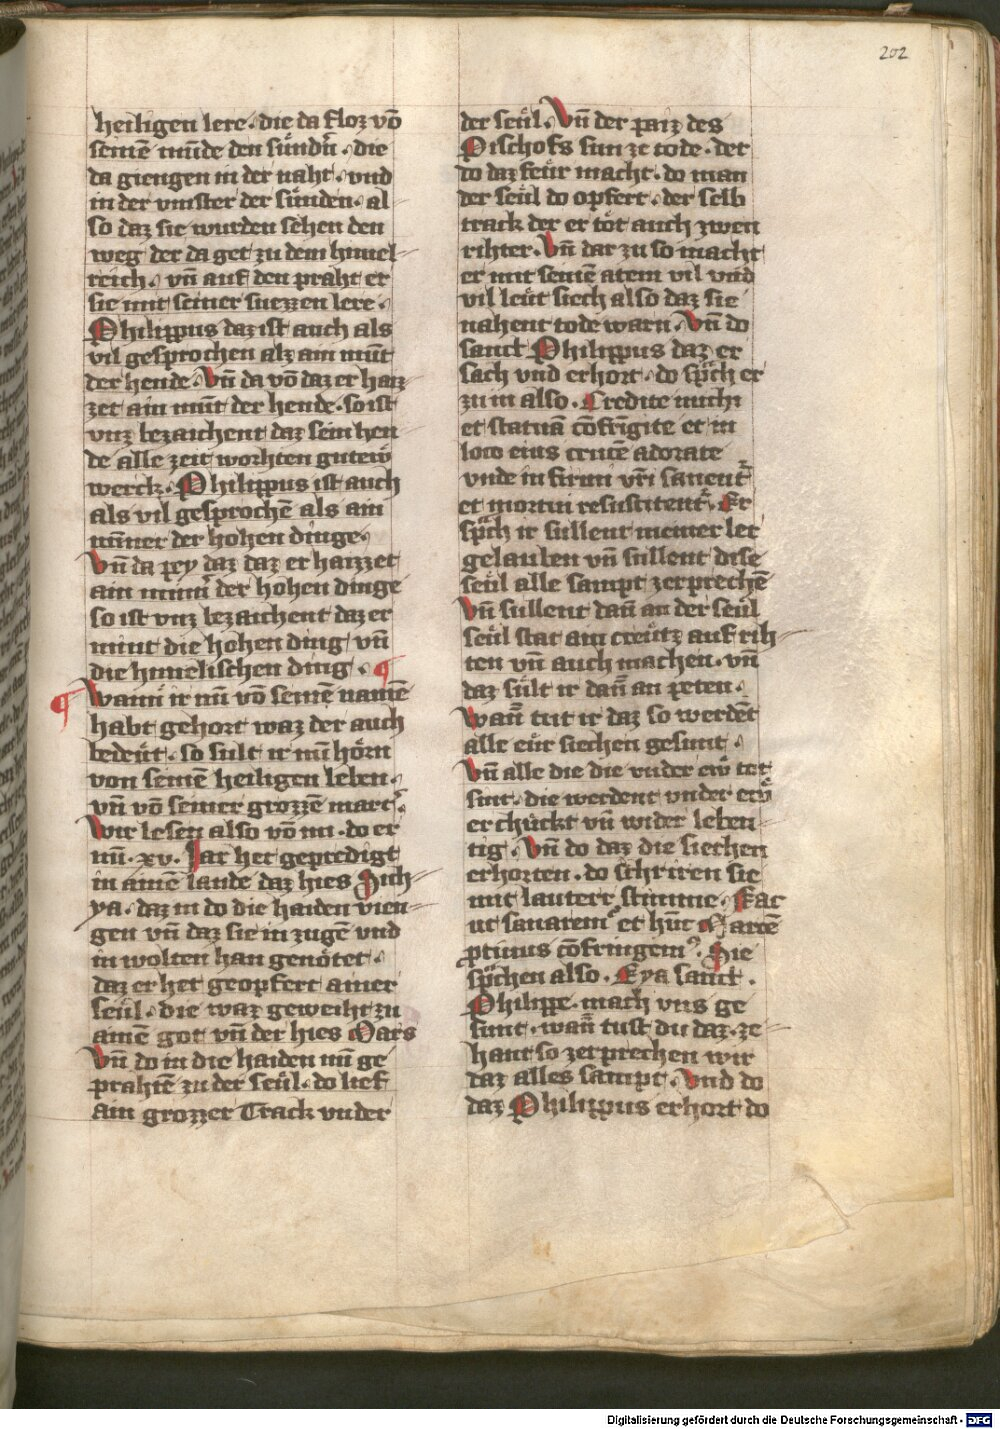 202
heiligen lere · die da floz vō
seinē mūde den sündn̄ · die
da giengen in der naht · vnd
in der vinster der sünden · al
so daz sie wurden sehen den
weg der da get zu dem himel
reich · vn̄ auf den praht er
sie mit seiner suezzen lere ·
Philippus daz ist auch als
vil gesprochen alz ain mūt
der hende · Vn̄ da vō daz er haiz
zet ain mūt der hende · so ist
vnz bezaichent daz sein hen
de alle zeit worhten gutew
werck · Philippus ist auch
als vil gesprochē als ain
mīner der hohen dinge ·
Vn̄ da pey daz daz er haizzet
ain minn̄ der hohen dinge
so ist vnz bezaichent daz er
mint die hohen ding vn̄
die himelischen ding · ¶
¶ Wann̄ ir nū vō seinē namē
habt gehort waz der auch
bedeüt · so sült ir nū hörn
von seinē heiligen leben ·
vn̄ vō seiner grozzē mart̄ ·
Wir lesen also vō im · do er
nū · xv · Jar het gepredigt
in ainē lande daz hies Sich
ya · daz in do die haiden vien
gen vn̄ daz sie in zugē vnd
in wolten han genötet ·
daz er het geopfert ainer
seül · die waz geweiht zu
ainē got vn̄ der hies Mars
Vn̄ do in die haiden nū ge
prahtē zu der seül · do lief
ain grozzer Track vnder
der seül · Vn̄ der paiz des
Pischofs sun ze tode · der
do daz feür macht · do man
der seül do opfert · der selb
track der er töt auch zwen
rihter · Vn̄ dar zu so macht
er mit seinē atem vil vnd
vil leüt siech also daz sie
nahent tode warn · Vn̄ do
sanct Philippus daz er
sach vnd erhort · do sp̄ch er
zu in also · Credite michi
et statuā cōfrīgite et in
loco eius crucē adorate
vnde infirmi vr̄i sanent̄
et mortui resuscitent̄ · Er
sp̄ch ir sullent meiner ler
gelauben vn̄ sullent dise
seül alle sampt zerprechē
Vn̄ sullent dan̄ an der seül
seül stat ain creütz auf rih
ten vn̄ auch machen · vn̄
daz sült ir dan̄ an peten ·
Wan̄ tut ir daz so werdēt
alle eür siechen gesunt ·
Vn̄ alle die die vnder ew̄ tot
sint · die werdent vnder ew̄
er chückt vn̄ wider leben
tig · Vn̄ do daz die siechen
erhorten · do schriren sie
mit lauterr stimme · Fac
ut sanarem᷒ et hūc Martē
ptinus cōfringem᷒ · Sie
sp̄chen also · Eya sanct ·
Philippe · mach vns ge
sunt · wan̄ tust du daz · ze
hant so zerprechen wir
daz alles sampt · Vnd do
daz Philippus erhort do
Digitalisierung gefördert durch die Deutsche Forschungsgemeinschaft - DFG